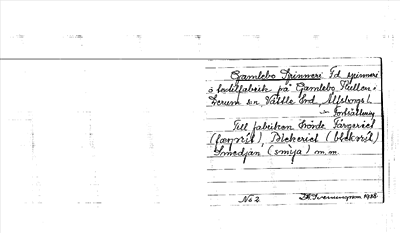 Gamlebo Spinneri F.d. spinneri
o textilfabrik på Gamlebo Kullen i
Lerum sn, Vättle hd, Älfsborgs l.
Fortsättning
Till fabriken hörde Färgeriet
(færjrit), Blekeriet (blekrit)
Smedjan (smija) m.m.
No 2 1928